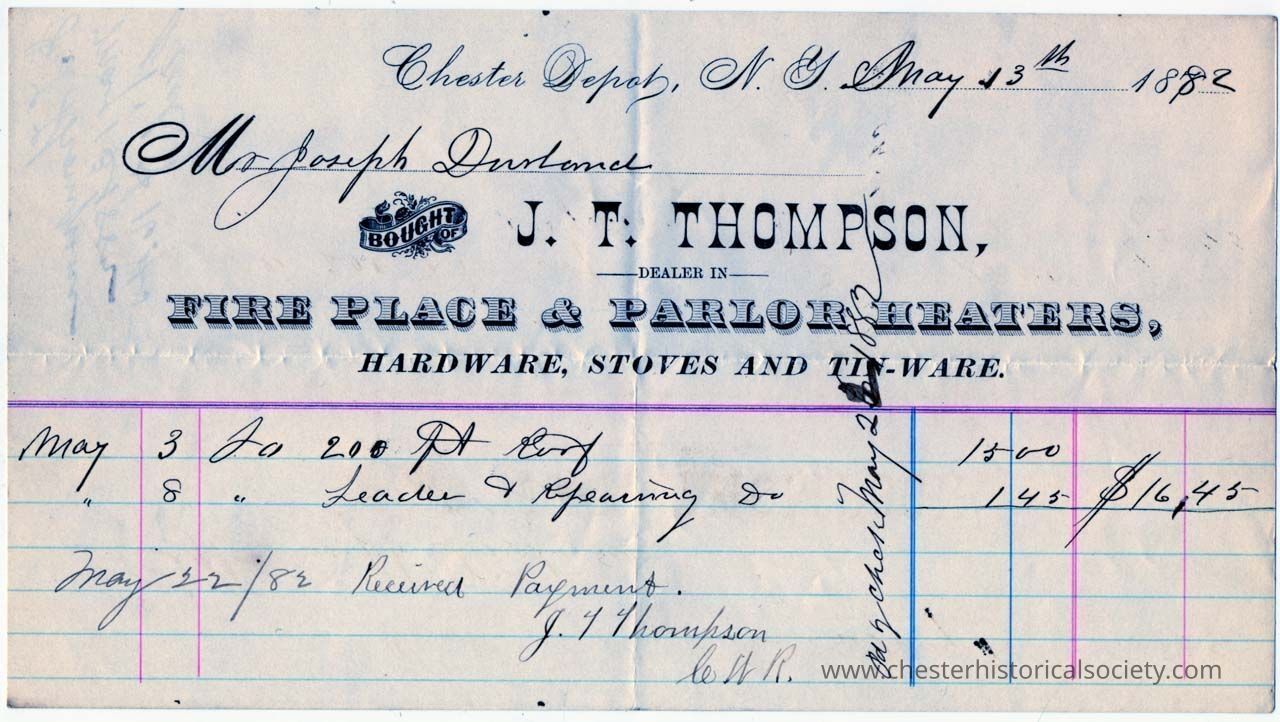 Chester Depot, N. Y. May 13th 1882
Mr Joseph Durland
BOUGHT OF J. T. THOMPSON,
DEALER IN
FIRE PLACE & PARLOR HEATERS,
HARDWARE, STOVES AND TIN-WARE.
May 3 To 200 ft 15 00
" 8 " Leader & Repearing Do 1 45 $16,45
May 22/82 Received Payment.
J. T Thompson
C W R.
Pd by check May 22 1882
www.chesterhistoricalsociety.com